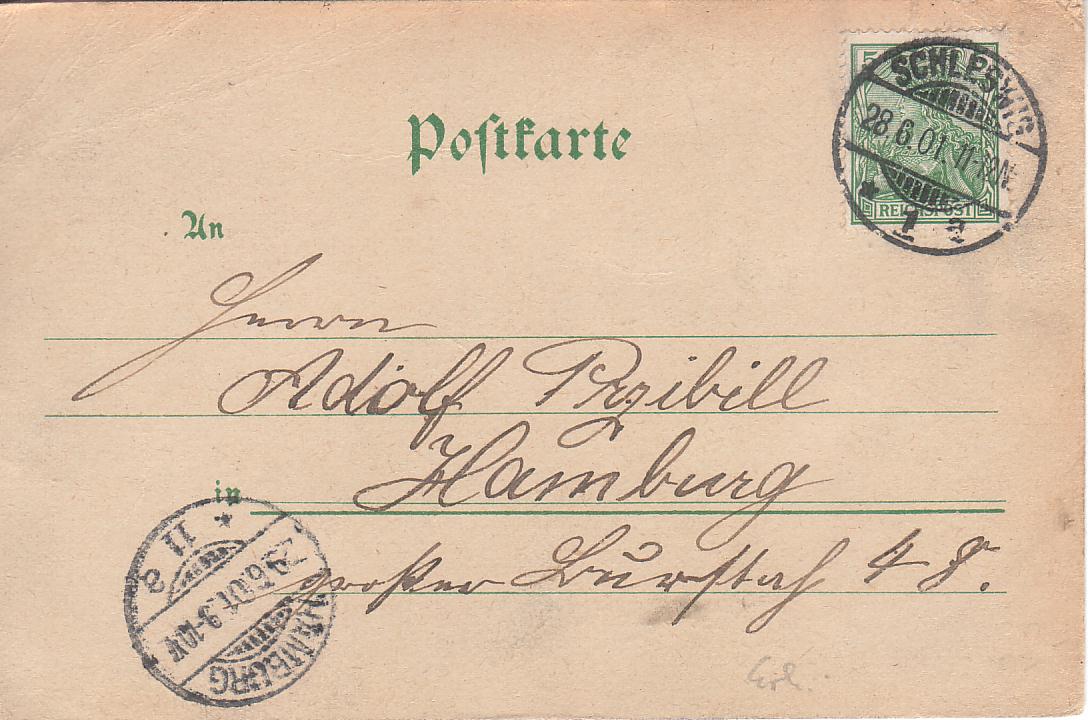 Postkarte
5
SCHLESWIG
28.6.01. 11-12N.
* 1 a
REICHSPOST
An
Herrn
Adolf Przibill
in Hamburg
großer Burstah 48.
* 11 a
29.6.01. 9-10V
HAMBURG